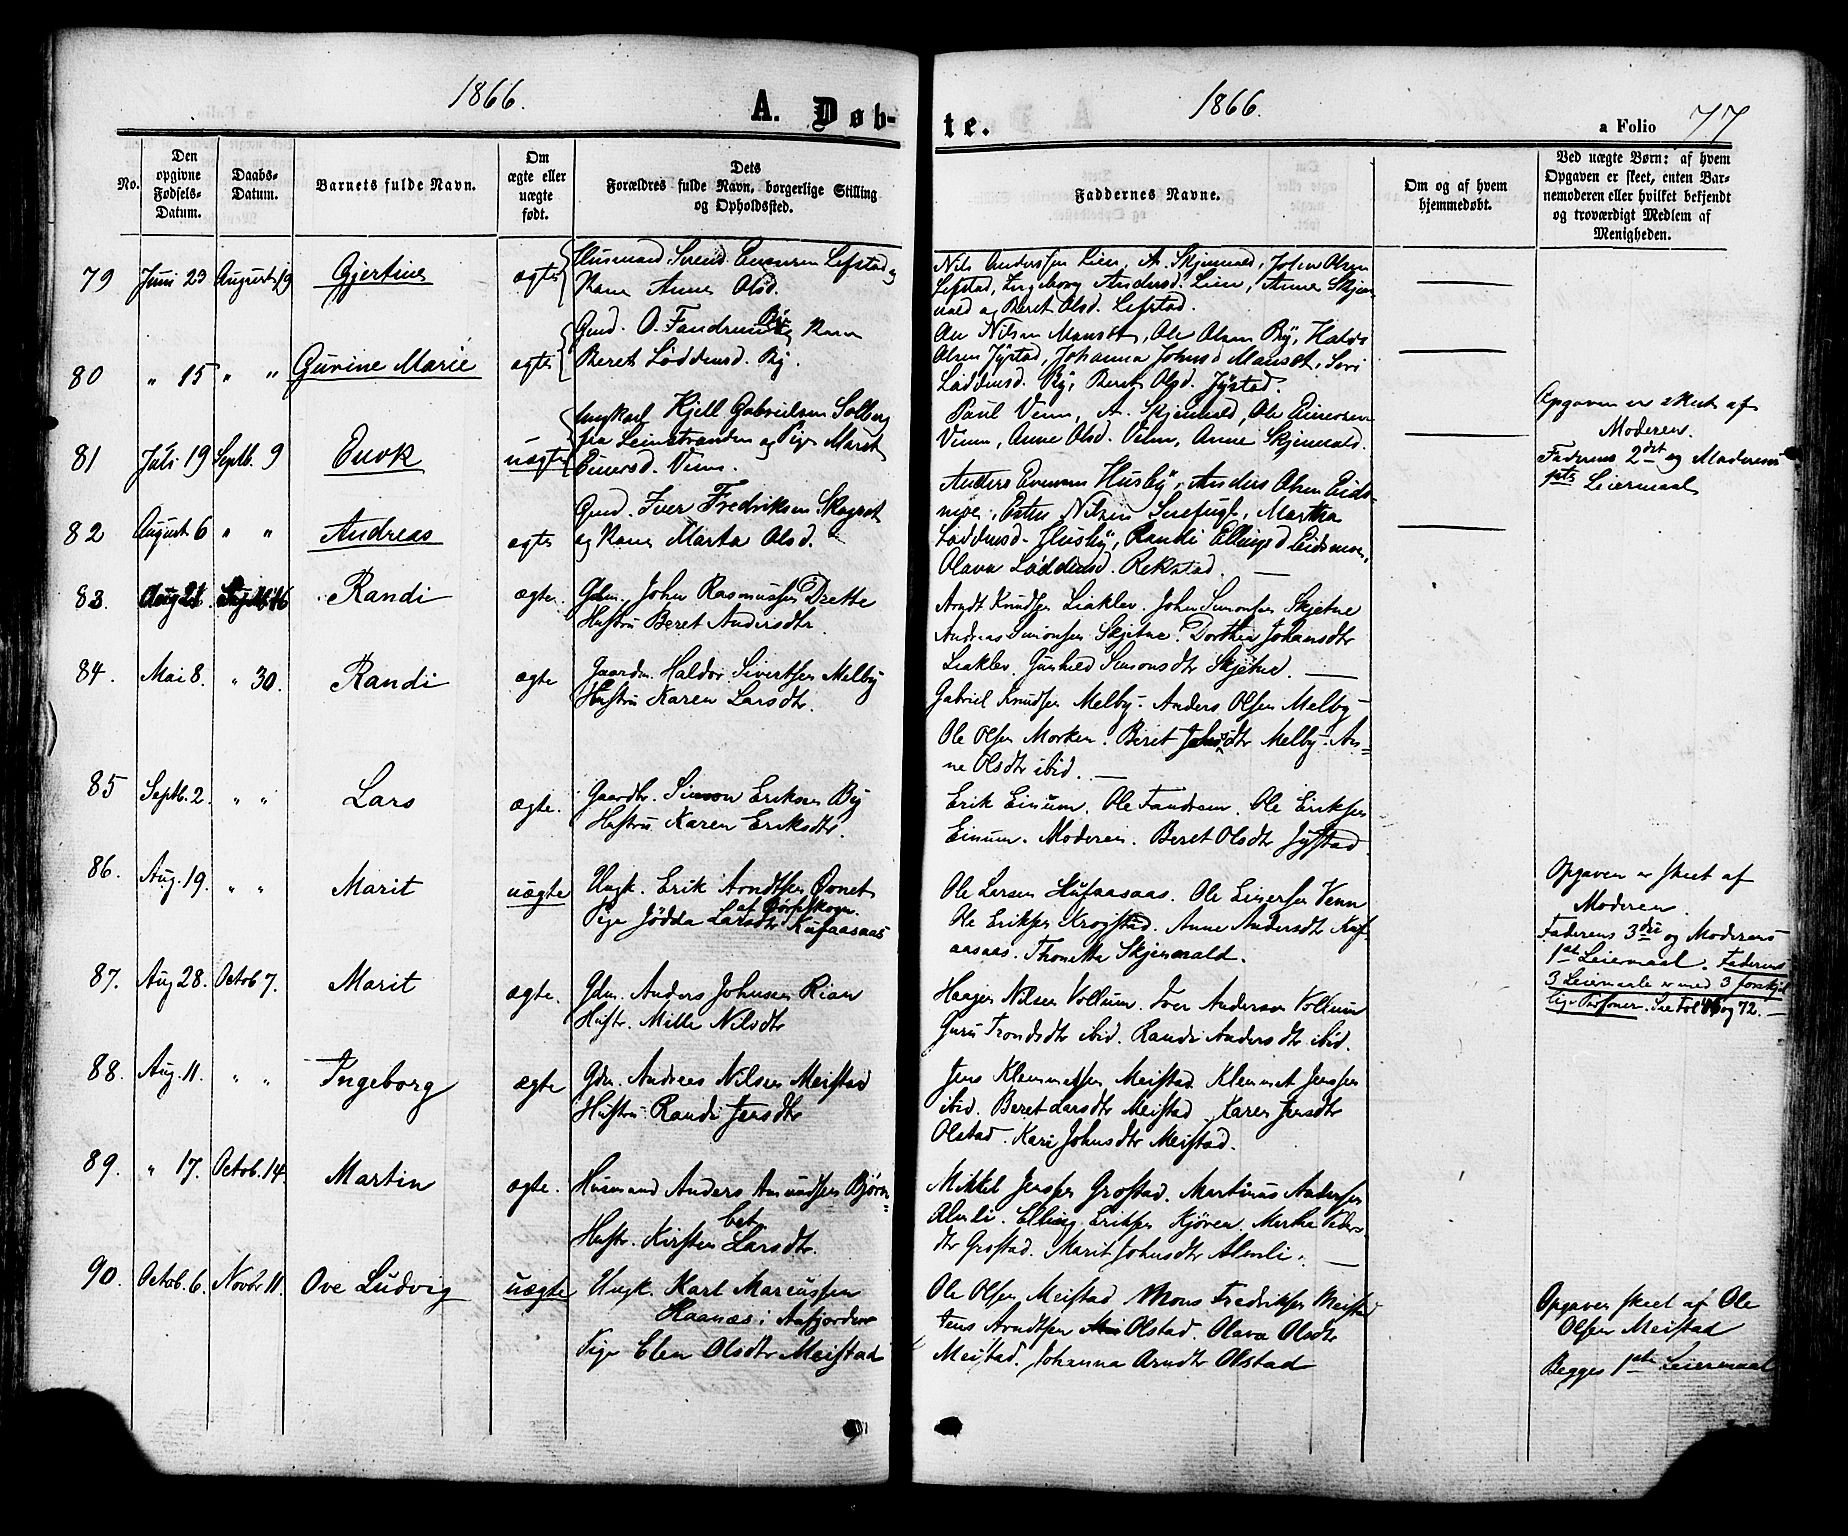 1866.
A. Døb-
No.
Den
opgivne
Fødsels-
Datum.
Daabs-
Datum.
Barnets fulde Navn.
Om
ægte eller
uægte
født.
Dets
Forældres fulde Navn, borgerlige Stilling
og Opholdssted.
79 Juni 23 August 19 Gjertine ægte Husmand Svend Lefstad og
Kone Anne Olsd.
80 " 15 " " Gurine Marie ægte Gmd. O. Fandrem By og Kone
Beret Loddensd. By.
81 Juli 19 Septb. 9 Enok uægte Ungkarl Kjell Gabrielsen Solberg
fra Leinstranden og Pige Marit
Einersd. Venn.
82 August 6 " " Andreas ægte Gmd. Iver Fredriksen
og Kone Marta Olsd.
83. Aug 21. Septb 16 Randi ægte. Gdm. John Rasmussen Drette
Hustru Beret Andersdtr.
84. Mai 8. " 30. Randi ægte Gaardm. Haldor Sivertsen Melby
Hustru Karen Larsdtr.
85 Septb. 2. " " Lars ægte. Gaardbr. Simon Eriksen By
Hustru Karen Eriksdtr.
86. Aug. 19. " " Marit uægte Ungk. Erik Arndtsen Øvnet
at Børseskogn.
Pige Jødda Larsdtr Kufaasaas
87. Aug 28. Octob 7. Marit ægte. Gdm. Anders Johnsen Rian
Hustr. Mille Nilsdtr
88. Aug. 11. " " Ingeborg ægte Gdm. Andreas Nilsen Meistad
Hustru Randi Jensdtr
89. " 17. Octob. 14. Martin ægte. Husmand Anders Amundsen Bjørn-
bet
Hustr. Kirsten Larsdtr.
90. Octob. 6. Novbr 11. Ove Ludvig uægte Ungk. Karl Marcussen
Haanæs i Aafjorden
Pige Elen Olsdtr Meistad
1866.
te.
a Folio 77
Faddernes Navne.
Om og af hvem
hjemmedøbt.
Ved uægte Børn: af hvem
Opgaven er skeet, enten Bar-
nemoderen eller hvilket bekjendt
og troværdigt Medlem af
Menigheden.
Nils Anderssen Lien, A. Skjenald, John Olsen
Lefstad, Ingeborg Andersd. Lien, Anne Skjen-
ald og Beret Olsd. Lefstad.
Ole Nilsen Manset, Ole Olsen By, Haldo
Olsen Jystad, Johanna Johnsd Manset, Siri
Loddensd. By, Beret Olsd. Jystad.
Paul Venn, A. Skjenald, Ole Einersen
Venn, Anne Olsd. Venn, Anne Skjenald.
Opgaven er skeet af
Moderen.
Faderens 2det og Moderens
1ste Leiermaal
Anders Evensen Husby, Anders Olsen Eids-
moe, Peter Nilsen Surefugl, Martha
Loddensd. Husby, Randi Ellingsd Eidsmoe,
Olava Loddensd. Rekstad.
Arndt Knudsen Liaklev. John Simonsen Skjetne
Andreas Simonsen Skjetne. Dorthea Johansdtr
Liaklev. Gunhild Simonsdtr Skjetne.
Gabriel Knudsen Melby. Anders Olsen Melby
Ole Olsen Morken. Beret Johnsdtr Melby. An-
ne Olsdtr ibid.
Erik Einum. Ole Fandrem. Ole Eriksen
Einum. Moderen. Beret Olsdtr Jystad.
Ole Larsen Kufaasaas. Ole Einersen Venn
Ole Eriksen Krogstad. Anne Andersdtr Kuf-
aasaas. Thonetta Skjenvald.
Opgaven er skeet af
Moderen.
Faderens 3die og Moderens
1ste Leiermaal. Faderens
3 Leiermaale er med 3 forskjel
lige Personer. See Fol 46 og 72.
Haagen Nilsen Vollum. Iver Andersen Vollum
Guru Trondsdtr ibid. Randi Andersdtr ibid.
Jens Klemmetsen Meistad. Klemmet Jensen
ibid. Beret Larsdtr Meistad. Karen Jensdtr
Olstad. Kari Johnsdtr Meistad.
Mikkel Jensen Grostad. Martinus Andersen
Almli. Elling Eriksen Kjøren. Martha Peders-
dtr Grostad. Marit Johnsdtr Almli.
Ole Olsen Meistad Mons Fredriksen Meistad
Jens Arndtsen Olstad. Olava Olsdtr
Meistad. Johanna Arndtr Olstad
Opgaven skeet af Ole
Olsen Meistad
Begges 1ste Leiermaal